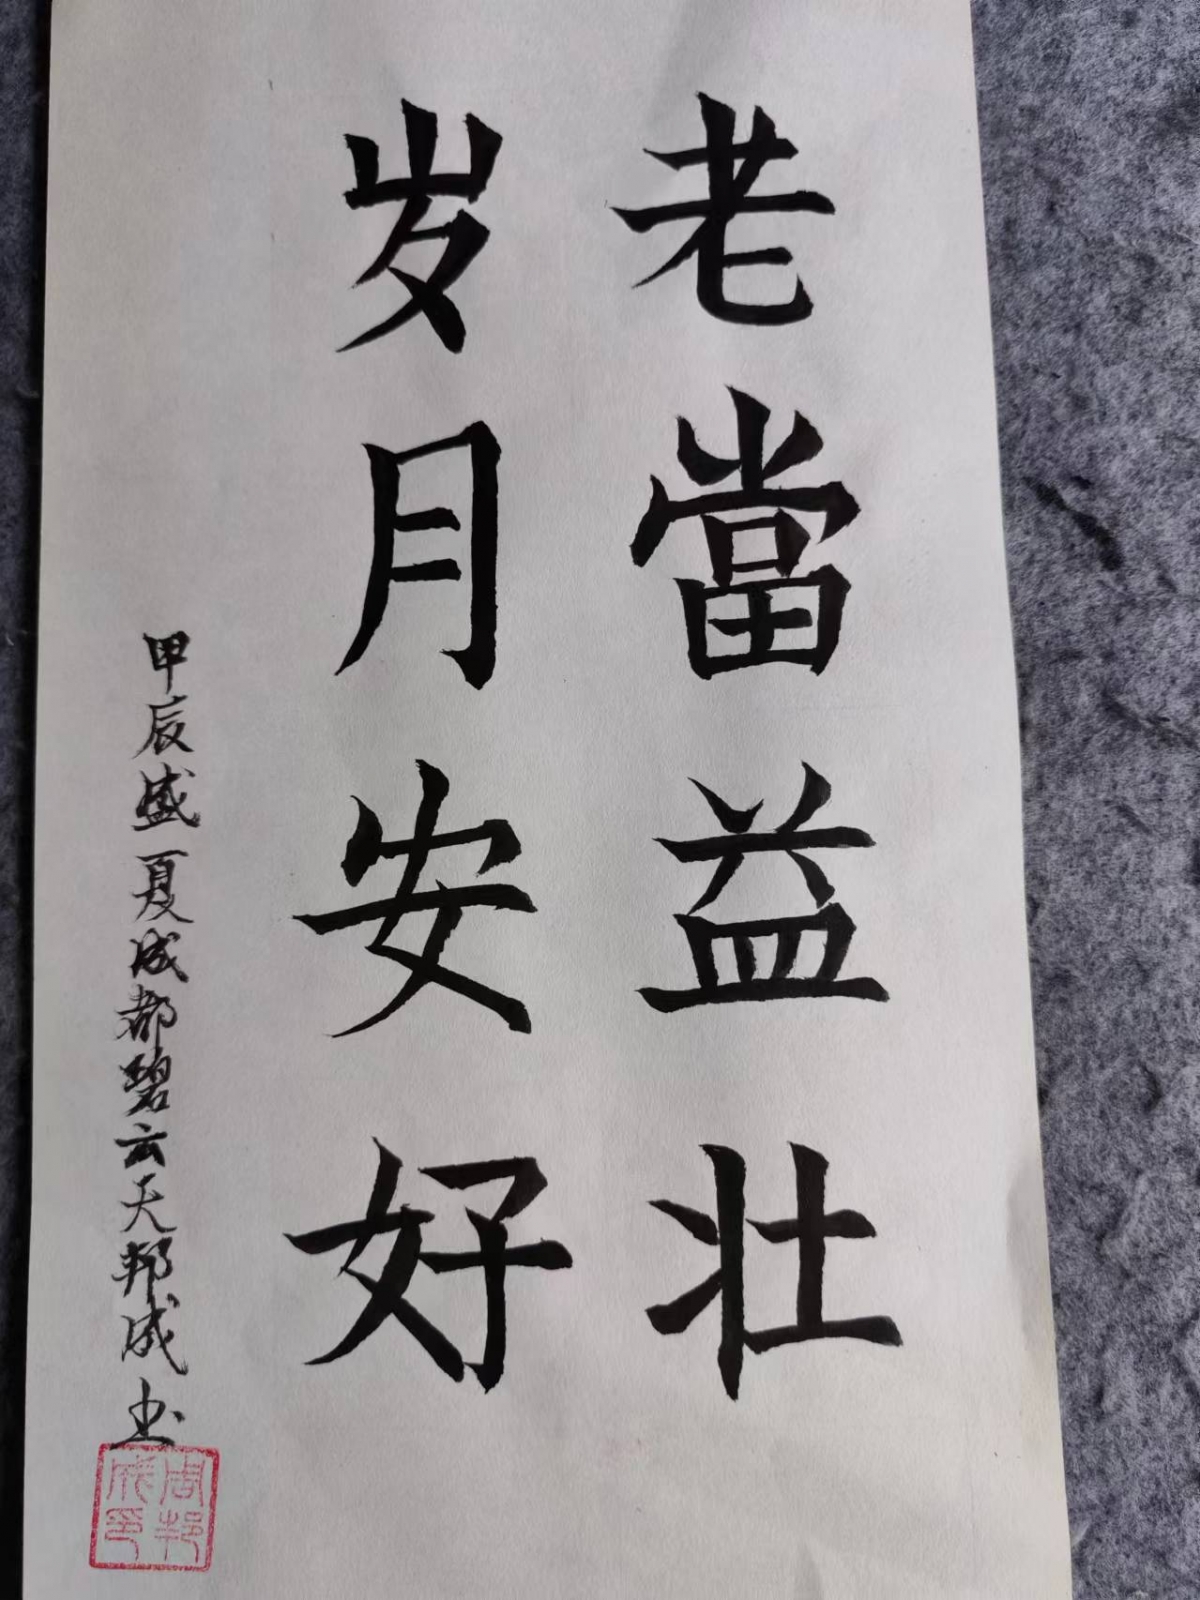 老當益壮
岁月安好
甲辰盛夏成都碧云天邦成书
周邦成印